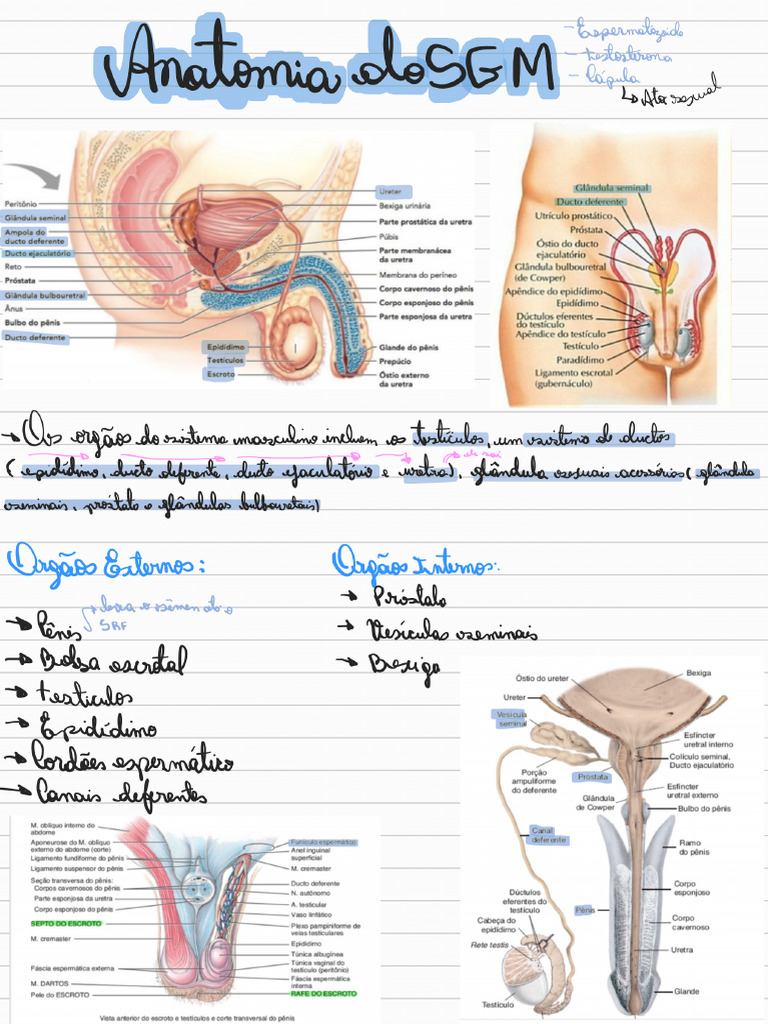 Anatomia do SGM
- Espermatozoide
- testosterona
- Cópula
↳ Ato sexual
Peritônio
Glândula seminal
Ampola do
ducto deferente
Ducto ejaculatório
Reto
Próstata
Glândula bulbouretral
Ânus
Bulbo do pênis
Ducto deferente
Epidídimo
Testículos
Escroto
Ureter
Bexiga urinária
Parte prostática da uretra
Púbis
Parte membranácea
da uretra
Membrana do períneo
Corpo cavernoso do pênis
Corpo esponjoso do pênis
Parte esponjosa da uretra
Glande do pênis
Prepúcio
Óstio externo
da uretra
Glândula seminal
Ducto deferente
Utrículo prostático
Próstata
Óstio do ducto
ejaculatório
Glândula bulbouretral
(de Cowper)
Apêndice do epidídimo
Epidídimo
Dúctulos eferentes
do testículo
Apêndice do testículo
Testículo
Paradídimo
Ligamento escrotal
(gubernáculo)
→ Os orgãos do sistema masculino incluem os testículos, um sistema de ductos
(epidídimo, ducto deferente, ducto ejaculatório e uretra), glândula sexuais acessórias (glândula
seminais, próstata e glândulas bulbouretais)
Orgãos Externos:
→ Pênis
leva o sêmen até o
SRF
→ Bolsa escrotal
→ testículos
→ Epidídimo
→ Cordões espermático
→ Canais deferentes
Orgãos Internos:
→ Próstata
→ Vesículas seminais
→ Bexiga
M. oblíquo interno do
abdome
Aponeurose do M. oblíquo
externo do abdome (corte)
Ligamento fundiforme do pênis
Ligamento suspensor do pênis
Seção transversa do pênis:
Corpos cavernosos do pênis
Parte esponjosa da uretra
Corpo esponjoso do pênis
SEPTO DO ESCROTO
M. cremaster
Fáscia espermática externa
M. DARTOS
Pele do ESCROTO
Funículo espermático
Anel inguinal
superficial
M. cremaster
Ducto deferente
N. autônomo
A. testicular
Vaso linfático
Plexo pampiniforme de
veias testiculares
Epidídimo
Túnica albugínea
Túnica vaginal do
testículo (peritônio)
Fáscia espermática
interna
RAFE DO ESCROTO
Vista anterior do escroto e testículos e corte transversal do pênis
Óstio do ureter
Bexiga
Ureter
Vesícula
seminal
Porção
ampuliforme
do deferente
Próstata
Glândula
de Cowper
Canal
deferente
Dúctulos
eferentes do
testículo
Cabeça do
epidídimo
Rete testis
Testículo
Pênis
Esfíncter
uretral interno
Colículo seminal,
Ducto ejaculatório
Esfíncter
uretral externo
Bulbo do pênis
Ramo
do pênis
Corpo
esponjoso
Corpo
cavernoso
Uretra
Glande